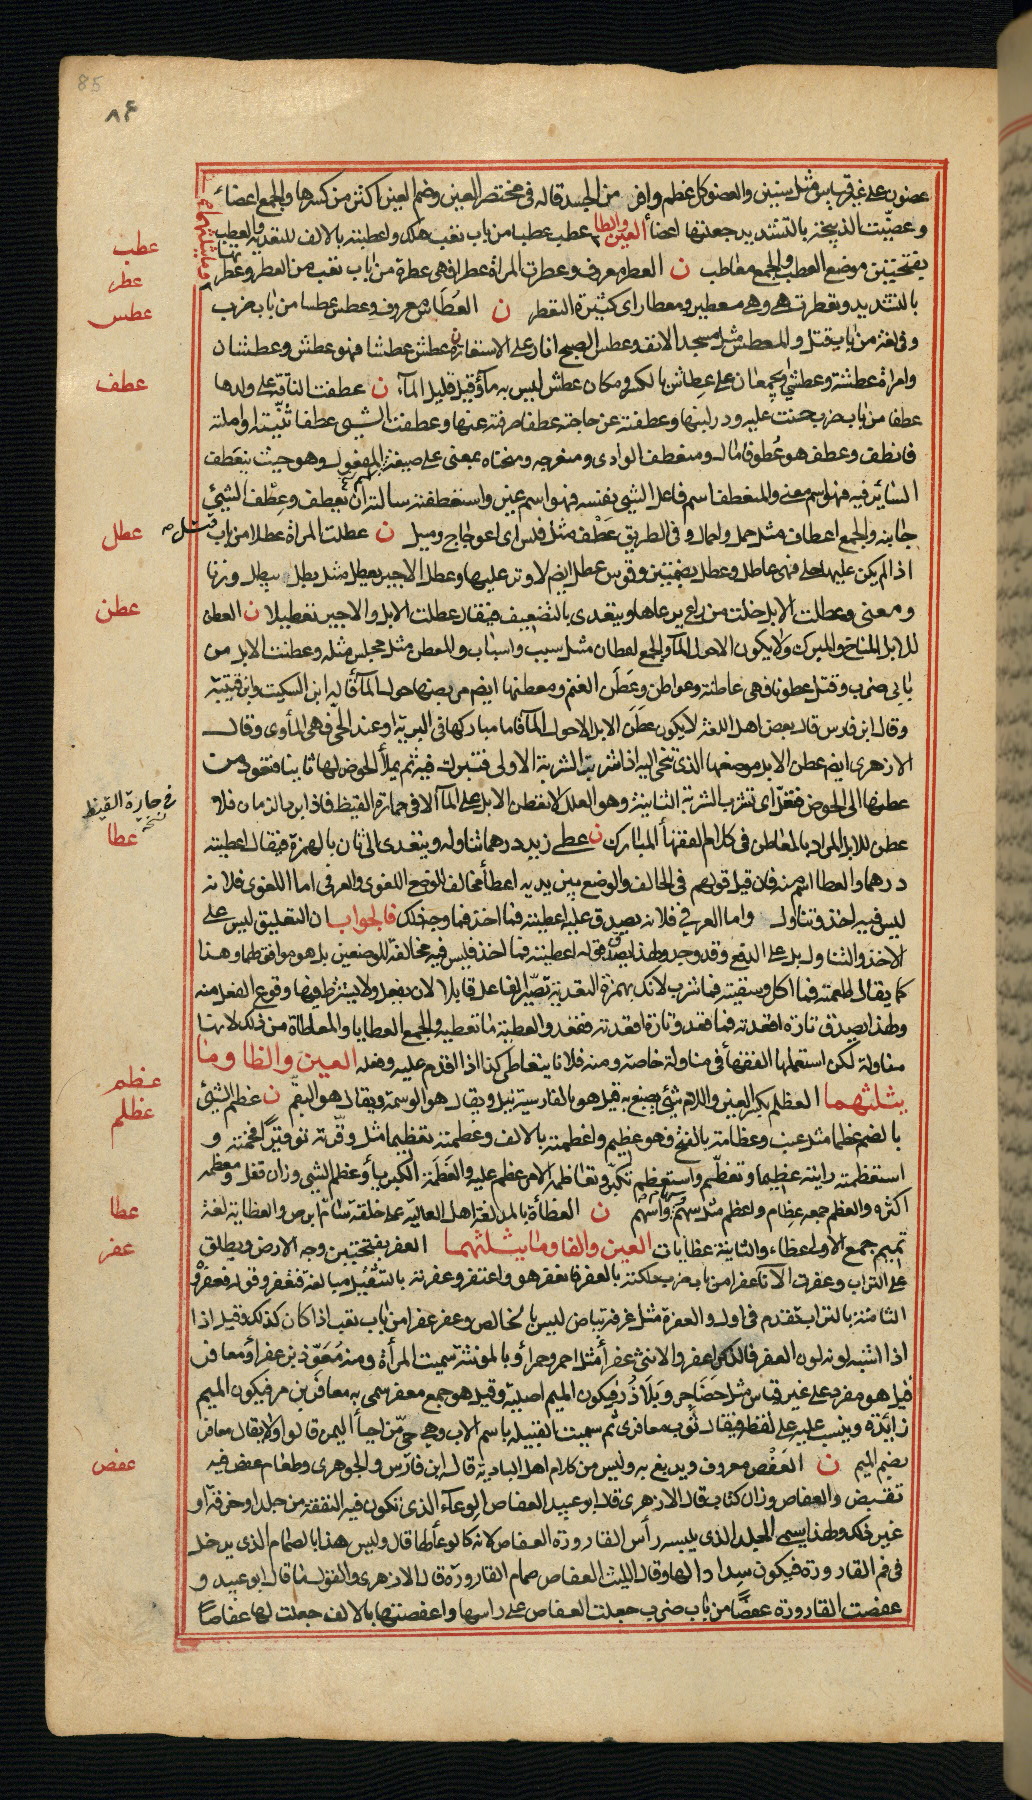 85
٨٤
عضون على غير قياس مثل سنين والعضو كل عظم وافر من الجسد قاله في مختصر العين وضم العين اكثر من كسرها والجمع اعضاء
وعضّيت الذبيحة بالتشديد جعلتها اعضأ العين والطا وما يثلثهما عطب عطبا من باب تعب هلك واعطبته بالالف للتعدية والمعطب
بفتحتين موضع العطب والجمع معاطب ن العطر معروف وعطرت المرأة عطرا فهي عطرة من باب تعب من العطر وعطرتها
بالتشديد وتعطرت هي وهي معطير ومعطار اى كثيرة التعطر ن العطاس معروف وعطس عطسا من باب ضرب
وفي لغة من باب قتل والمعطس مثل مسجد الانف وعطس الصبح انار على الاستعارة ن عطش عطشا فهو عطش وعطشان
وامرأة عطشة وعطشى ويجمعان على عطاش بالكسر ومكان عطش ليس به ماء وقيل قليل المآء ن عطفت الناقة على ولدها
عطفا من باب ضرب حنت عليه ودر لبنها وعطفته عن حاجته عطفا صرفته عنها وعطفت الشيئ عطفا ثنيته او املته
فانعطف وعطف هو عطوفا مال ومنعطف الوادى ومنعرجه ومنحناه بمعنى على صيغة اسم المفعول وهو حيث ينعطف
السائر فيه فهو اسم معنى والمنعطف اسم فاعل الشيئ نفسه فهو اسم عين واستعطفته سالته ان يعطف وعِطْف الشيئ
جانبه والجمع اعطاف مثل حمل واحمال وفي الطريق عَطْف مثل فلس اى اعوجاج وميل ن عطلت المرأة عطلا من باب قتل
اذا لم يكن عليها حلى فهي عاطل وعطل بضمتين وقوس عطل ايضم لا وتر عليها وعطل الاجير يعطل مثل بطل يبطل وزنا
ومعنى وعطلت الابل خلت من راع يرعاها ويتعدى بالتضعيف فيقال عطلت الابل والاجير تعطيلا ن العطن
للابل المناخ والمبرك ولا يكون الا حول المآء والجمع اعطان مثل سبب واسباب والمعطن مثل مجلس مثله وعطنت الابل من
بابي ضرب وقتل عطونا فهي عاطنة وعواطن وعطن الغنم ومعطنها ايضم مربضها حول المآء قاله ابن السكيت وابن قتيبة
وقال ابن فارس قال بعض اهل اللغة لا يكون عطن الابل الا حول المآء فاما مباركها في البرية او عند الحى فهي المأوى وقال
الازهرى ايضم عطن الابل موضعها الذى تتنحى اليه اذا شربت الشربة الاولى فتبرك فيه ثم يملأ الحوض لها ثانيا فتعود من
عطنها الى الحوض فتعلّ اى تشرب الشربة الثانية وهو العلل لا تعطن الابل على المآء الا في حمارة القيظ فاذا برد الزمان فلا
عطن للابل والمراد بالمعاطن في كلام الفقهأ المبارك ن عطى زيد درهما تناوله ويتعدى الى ثان بالهمزة فيقال اعطيته
درهما والعطا اسم منه فان قيل قولهم في الحالف والوضع بين يديه اعطأ مخالف للوضع اللغوى والعرفي اما اللغوى فلانه
ليس فيه اخذ وتناول واما العرفي فلانه يصدق عليه اعطيته فما اخذ فما وجه ذلك فالجواب ان التعليق ليس على
الاخذ والتناول بل على الدفع وقد وجد ولهذا يصدق قوله اعطيته فما اخذ فليس فيه مخالفة للوضعين بل هو موافق لهما وهذا
كما يقال اطعمته فما اكل وسقيته فما شرب لانك بهمزة التعدية تصيّر الفاعل قابلا لان يفعل ولا يشترط فيها وقوع الفعل منه
ولهذا يصدق تارة اقعدته فما قعد وتارة اقعدته فقعد والعطية ما تعطيه والجمع العطايا والمعاطاة من ذلك لانها
مناولة لكن استعملها الفقهأ في مناولة خاصة ومنه فلان يتعاطى كذا اذا اقدم عليه وفعله العين والظا وما
يثلثهما العظلم بكسر العين واللام شئ يصبغ به قيل هو بالفارسية نيل ويقال هو الوسمة ويقال هو البقم ن عظم الشيئ
بالضم عظما مثل عنب وعظامة بالفتح فهو عظيم واعظمته بالالف وعظمته تعظيما مثل وقّرته توقيرا وفخمته و
استعظمته رايته عظيما وتعظّم واستعظم تكبر وتعاظمه الامر عظم عليه والعَظَمَة الكبريأ وعظم الشيئ وزان قفل ومعظمه
اكثره والعظم جمعه عظام واعظم مثل سهم وسهام واسهم ن العظأة بالمد لغة اهل العالية على خلقة سام ابرص والعظاية لغة
تميم جمع الاولى عظاء والثانية عظايات العين والفا وما يثلثهما العفر بفتحتين وجه الارض ويطلق
على التراب وعفرت الاناء عفرا من باب ضرب دلكته بالعفر فانعفر هو واعتفر وعفرته بالتثقيل مبالغة فتعفر وقوله فعفروه
الثامنة بالتراب تقدم في اول والعفرة مثل غرفة بياض ليس بالخالص وعفر عفرا من باب تعب اذا كان كذلك وقيل اذا
اذا اشبه لونه لون العفر فالذكر اعفر والانثى عفرأ مثل احمر وحمرأ وبالمؤنثة سميت المرأة ومنه مُعَوّذ بن عفرأ ومعافر
قيل هو مفرد على غير قياس مثل حَضَاجِر وبَلَاذُر فيكون الميم اصلية وقيل هو جمع معفر سمى به معافر بن مر فيكون الميم
زايدة وينسب عليه على لفظه فيقال ثوب معافرى ثم سميت القبيله باسم الاب وهي حى من احيأ اليمن قالوا ولا يقال معافر
بضم الميم ن العفص معروف ويدبغ به وليس من كلام اهل البادية قال ابن فارس والجوهرى وطعام عفص فيه
تقبض والعفاص وزان كتاب قال الازهرى قال ابو عبيد العفاص الوعآء الذى تكون فيه النفقة من جلد او خرقة او
غير ذلك ولهذا يسمى الجلد الذى يلبسه رأس القارورة العفاص لانه كالوعأ لها قال وليس هذا بالصمام الذى يدخل
في فم القارورة فيكون سدادا لها وقال الليث العفاص صمام القارورة قال الازهرى والقول ما قال ابو عبيد و
عفصت القارورة عفصًا من باب ضرب جعلت العفاص على راسها واعفصتها بالالف جعلت لها عفاصًا
عطب
عطر
عطس
عطف
عطل
عطن
في حارة القيظ
نسخة
عطا
عظم
عظلم
عطا
عفر
عفص